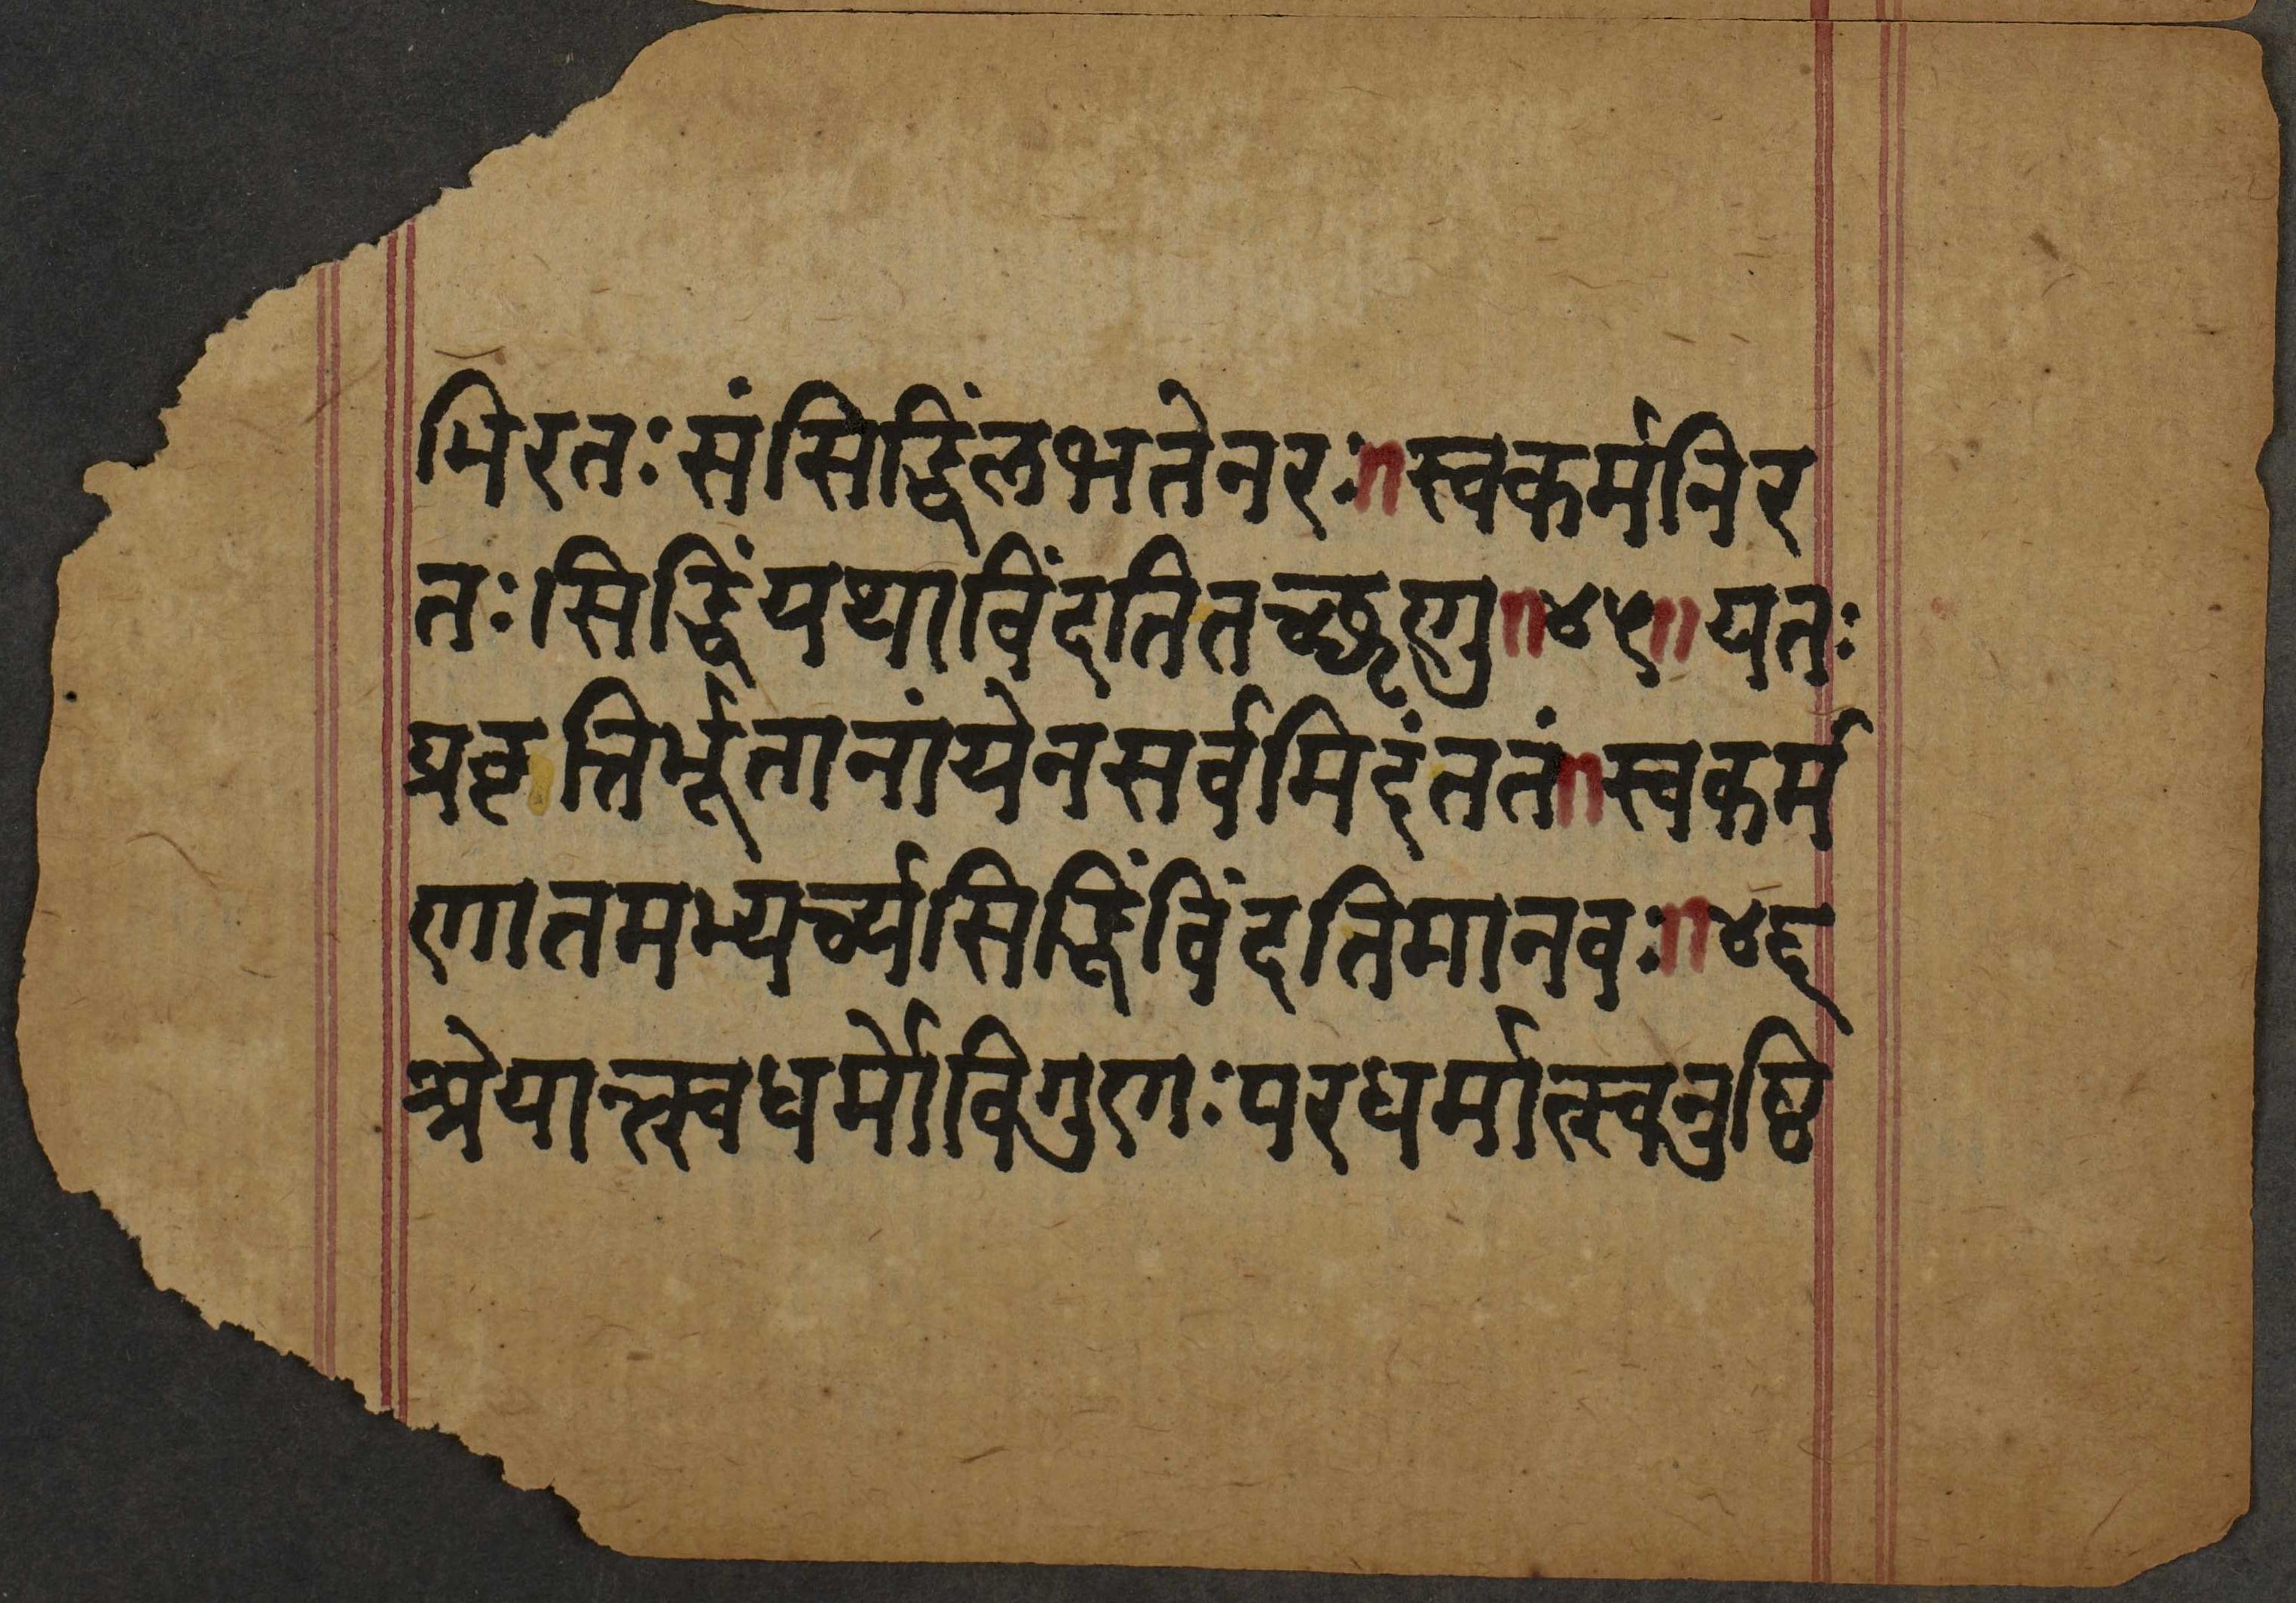 भिरतःसंसिद्धिंलभतेनरः॥स्वकर्मनिर
तःसिद्धिंयथाविंदतितच्छृणु॥४५॥यतः
प्रवृत्तिर्भूतानांयेनसर्वमिदंततं॥स्वकर्म
णातमभ्यर्च्यसिद्धिंविंदतिमानवः॥४६
श्रेयान्स्वधर्मोविगुणःपरधर्मात्स्वनुष्ठि